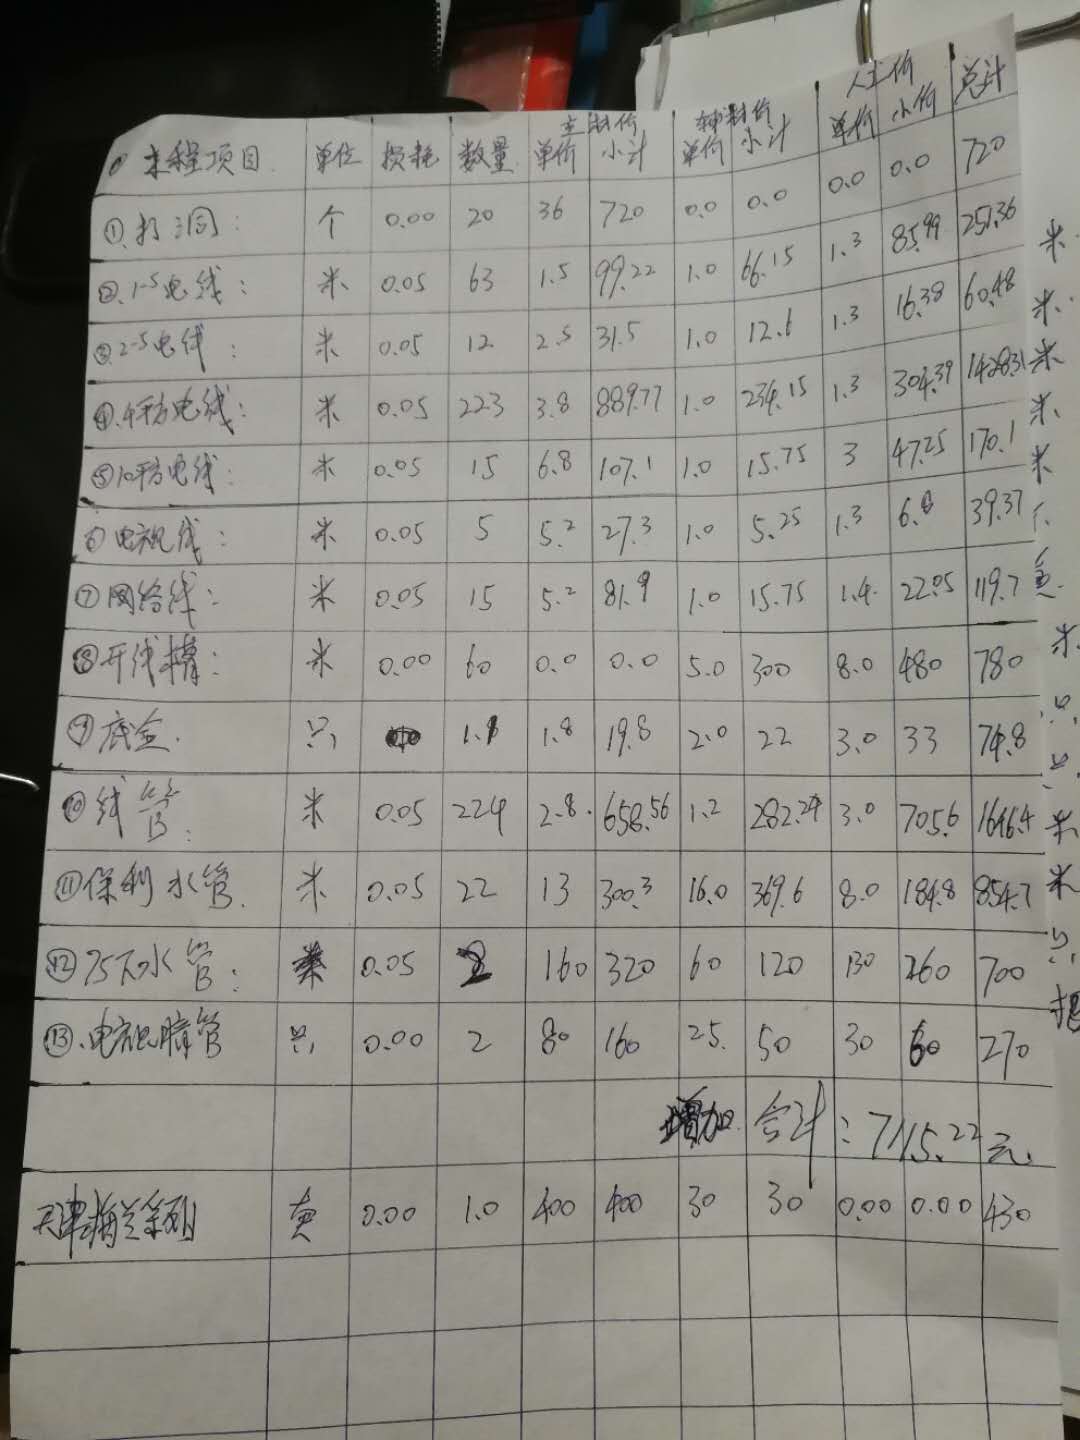 主材价 辅材价 人工价
工程项目 单位 损耗 数量 单价 小计 单价 小计 单价 小价 总计
①.打洞: 个 0.00 20 36 720 0.0 0.0 0.0 0.0 720
②.1-5电线: 米 0.05 63 1.5 99.22 1.0 66.15 1.3 85.99 251.36
③2-5电线: 米 0.05 12 2.5 31.5 1.0 12.6 1.3 16.38 60.48
④.4平方电线: 米 0.05 223 3.8 889.77 1.0 234.15 1.3 304.39 1428.31
⑤10平方电线: 米 0.05 15 6.8 107.1 1.0 15.75 3 47.25 170.1
⑥电视线: 米 0.05 5 5.2 27.3 1.0 5.25 1.3 6.8 39.37
⑦网络线: 米 0.05 15 5.2 81.9 1.0 15.75 1.4 22.05 119.7
⑧开线槽: 米 0.00 60 0.0 0.0 5.0 300 8.0 480 780
⑨底盒. 只 1.8 19.8 2.0 22 3.0 33 74.8
⑩线管: 米 0.05 224 2.8 658.56 1.2 282.24 3.0 705.6 1646.4
⑪保利水管. 米 0.05 22 13 300.3 16.0 369.6 8.0 184.8 854.7
⑫75下水管: 0.05 2 160 320 60 120 130 260 700
⑬.电视暗管 只 0.00 2 80 160 25. 50 30 60 270
增加 合计: 7115.22元.
天津梅兰系列 套 0.00 1.0 400 400 30 30 0.00 0.00 430
米
米
米
米
米
米
只
米
米
只